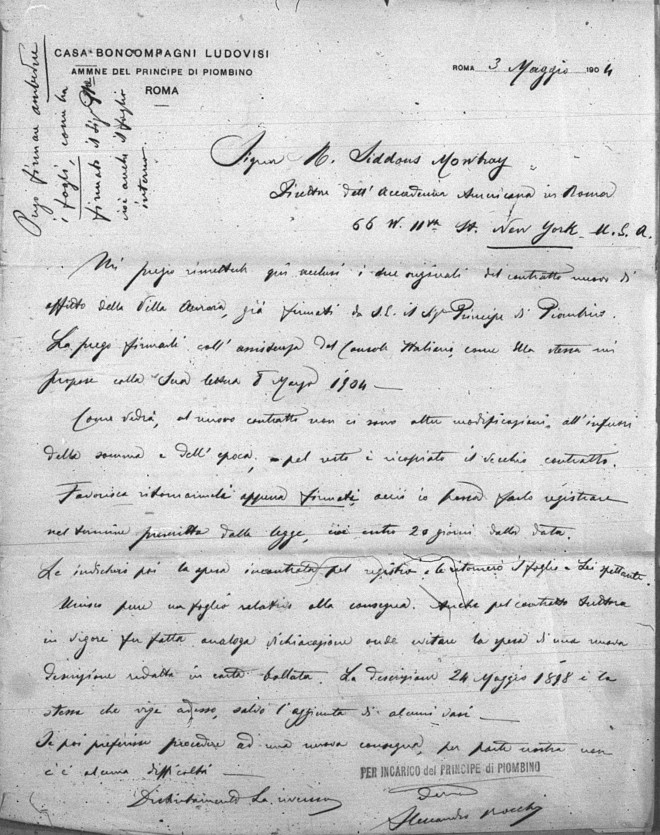 CASA BONCOMPAGNI LUDOVISI
AMMNE DEL PRINCIPE DI PIOMBINO
ROMA
ROMA 3 Maggio 1904
Prego firmare ambedue
i fogli, come ha
firmato il Sigr Pne
cioè anche il foglio
interno
Signor H. Siddons Mowbray
Direttore dell' Accademia Americana in Roma
66 W. 11th St. New York - U.S.A.
Mi pregio rimetterle qui acclusi i due originali del contratto nuovo di
affitto della Villa Aurora, già firmati da S.E. il Sigr Principe di Piombino.
La prego firmarli coll' assistenza del Console Italiano, come Ella stessa mi
propose colla Sua lettera 8 Marzo 1904 —
Come vedrà, al nuovo contratto non ci sono altre modificazioni all' infuori
della somma e dell' epoca, - pel resto è ricopiato il vecchio contratto.
Favorisca ritornarmeli appena firmati, acciò io possa farlo registrare
nel termine prescritto dalla legge, cioè entro 20 giorni dalla data.
Le indicherò poi la spesa incontrata pel registro e le ritornerò il foglio a Lei spettante.
Unisco pure un foglio relativo alla consegna. Anche pel contratto tuttora
in vigore fu fatta analoga dichiarazione onde evitare la spesa di una nuova
descrizione redatta in carta bollata. La descrizione 24 Maggio 1898 è la
stessa che vige adesso, salvo l'aggiunta di alcuni vasi —
Se poi preferisse procedere ad una nuova consegna, per parte nostra non
c'è alcuna difficoltà —
PER INCARICO del PRINCIPE di PIOMBINO
Distintamente La riverisco
Alessandro